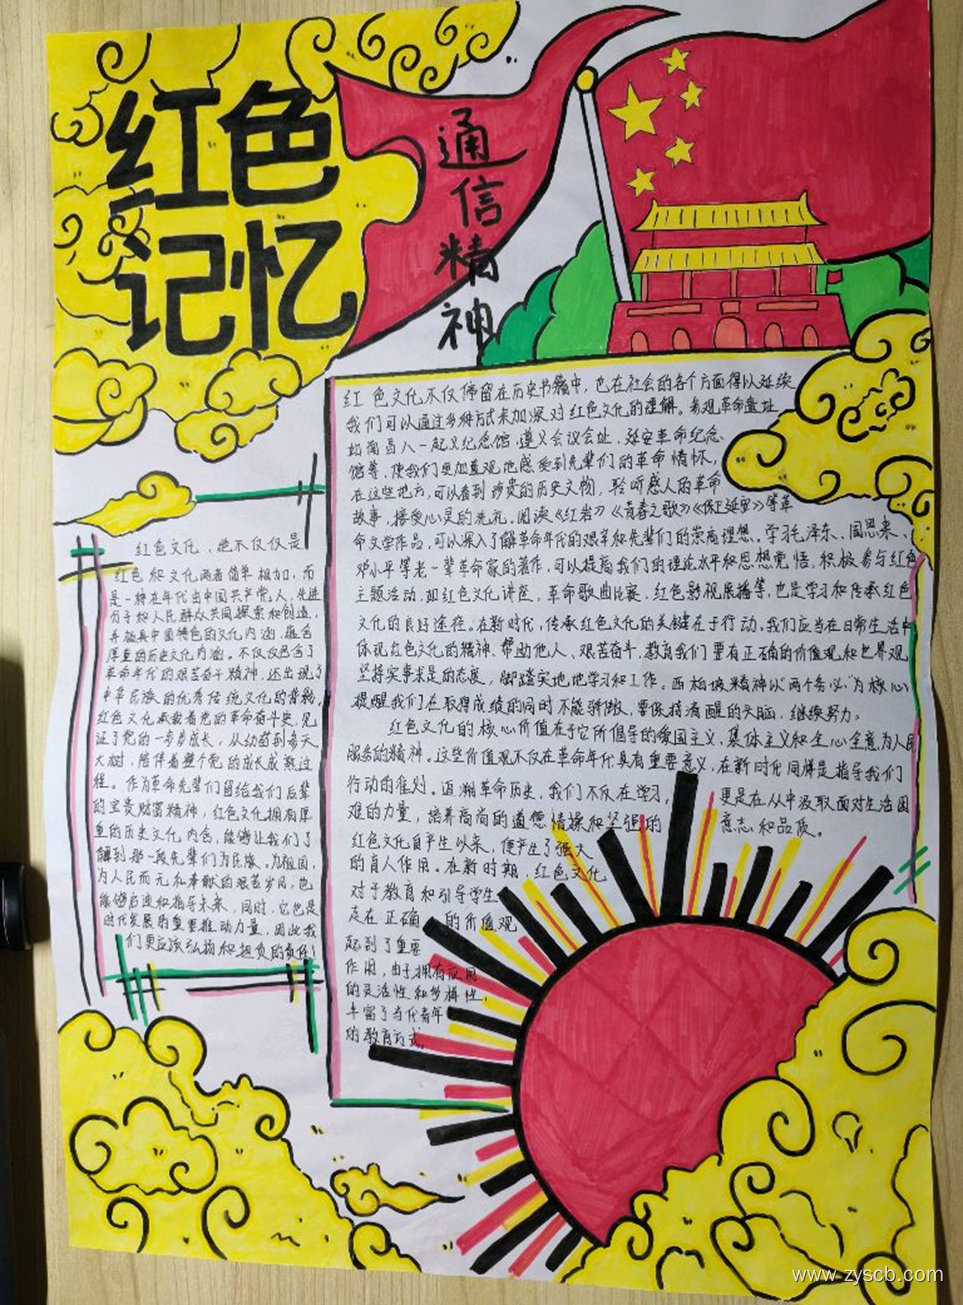 红色
记忆
通
信
精
神
红色文化不仅停留在历史书籍中，也在社会的各个方面得以延续
我们可以通过多种方式来加深对红色文化的理解。参观革命遗址
如南昌八一起义纪念馆、遵义会议会址，延安革命纪念
馆等，使我们更加直观地感受到先辈们的革命情怀，
在这些地方，可以看到珍贵的历史文物，聆听感人的革命
故事，接受心灵的洗礼。阅读《红岩》《青春之歌》《保卫延安》等革
命文学作品，可以深入了解革命年代的艰辛和先辈们的崇高理想，学习毛泽东、周恩来、
邓小平等老一辈革命家的著作，可以提高我们的理论水平和思想觉悟，积极参与红色
主题活动，如红色文化讲座，革命歌曲比赛，红色影视展播等，也是学习和传承红色
文化的良好途径。在新时代，传承红色文化的关键在于行动，我们应当在日常生活中
体现红色文化的精神，帮助他人、艰苦奋斗，教育我们要有正确的价值观和世界观
坚持实事求是的态度，脚踏实地地学习和工作。西柏坡精神以“两个务必”为核心
提醒我们在取得成绩的同时不能骄傲，要保持清醒的头脑，继续努力。
红色文化的核心价值在于它所倡导的爱国主义，集体主义和全心全意为人民
服务的精神。这些价值观不仅在革命年代具有重要意义，在新时代同样是指导我们
行动的准则。追溯革命历史，我们不仅在学习，更是在从中汲取面对生活困
难的力量，培养高尚的道德情操和坚强的意志和品质。
红色文化自产生以来，便产生了强大
的育人作用。在新时期，红色文化
对于教育和引导学生
走在正确的价值观
起到了重要
作用，由于拥有应用
的灵活性和多样性，
丰富了当代青年
的教育方式。
红色文化，绝不仅仅是
红色和文化两者简单相加，而
是一种在年代由中国共产党人，先进
分子和人民群众共同探索和创造，
并极具中国特色的文化内涵，蕴含
厚重的历史文化内涵。不仅仅包含了
革命年代的艰苦奋斗精神，还出现了
中华民族的优秀传统文化的背影
红色文化承载着党的革命奋斗史，见
证了党的一步步成长，从幼苗到参天
大树，陪伴着整个党的成长成熟过
程。作为革命先辈们留给我们后辈
的宝贵财富精神，红色文化拥有厚
重的历史文化内含，能够让我们了
解到那一段先辈们为民族，为祖国，
为人民而无私奉献的艰苦岁月，也
能够启迪和指导未来，同时，它也是
时代发展的重要推动力量，因此我
们更应该弘扬和担负的责任！
www.zyscb.com